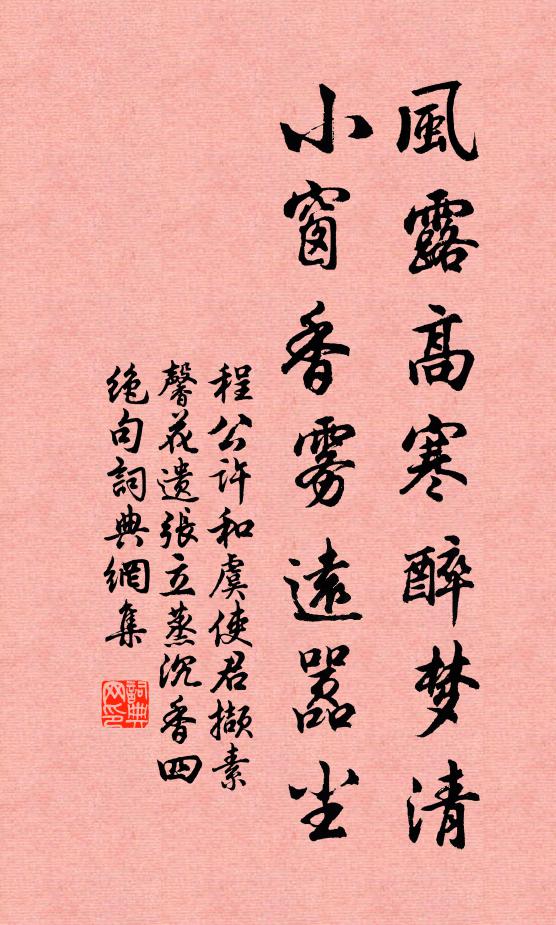 風露高寒醉梦清
小窗香雾遠嚣尘
程公许和虞使君撷素
馨花遗張立蒸沉香四
绝句詞典網集
詞典网印